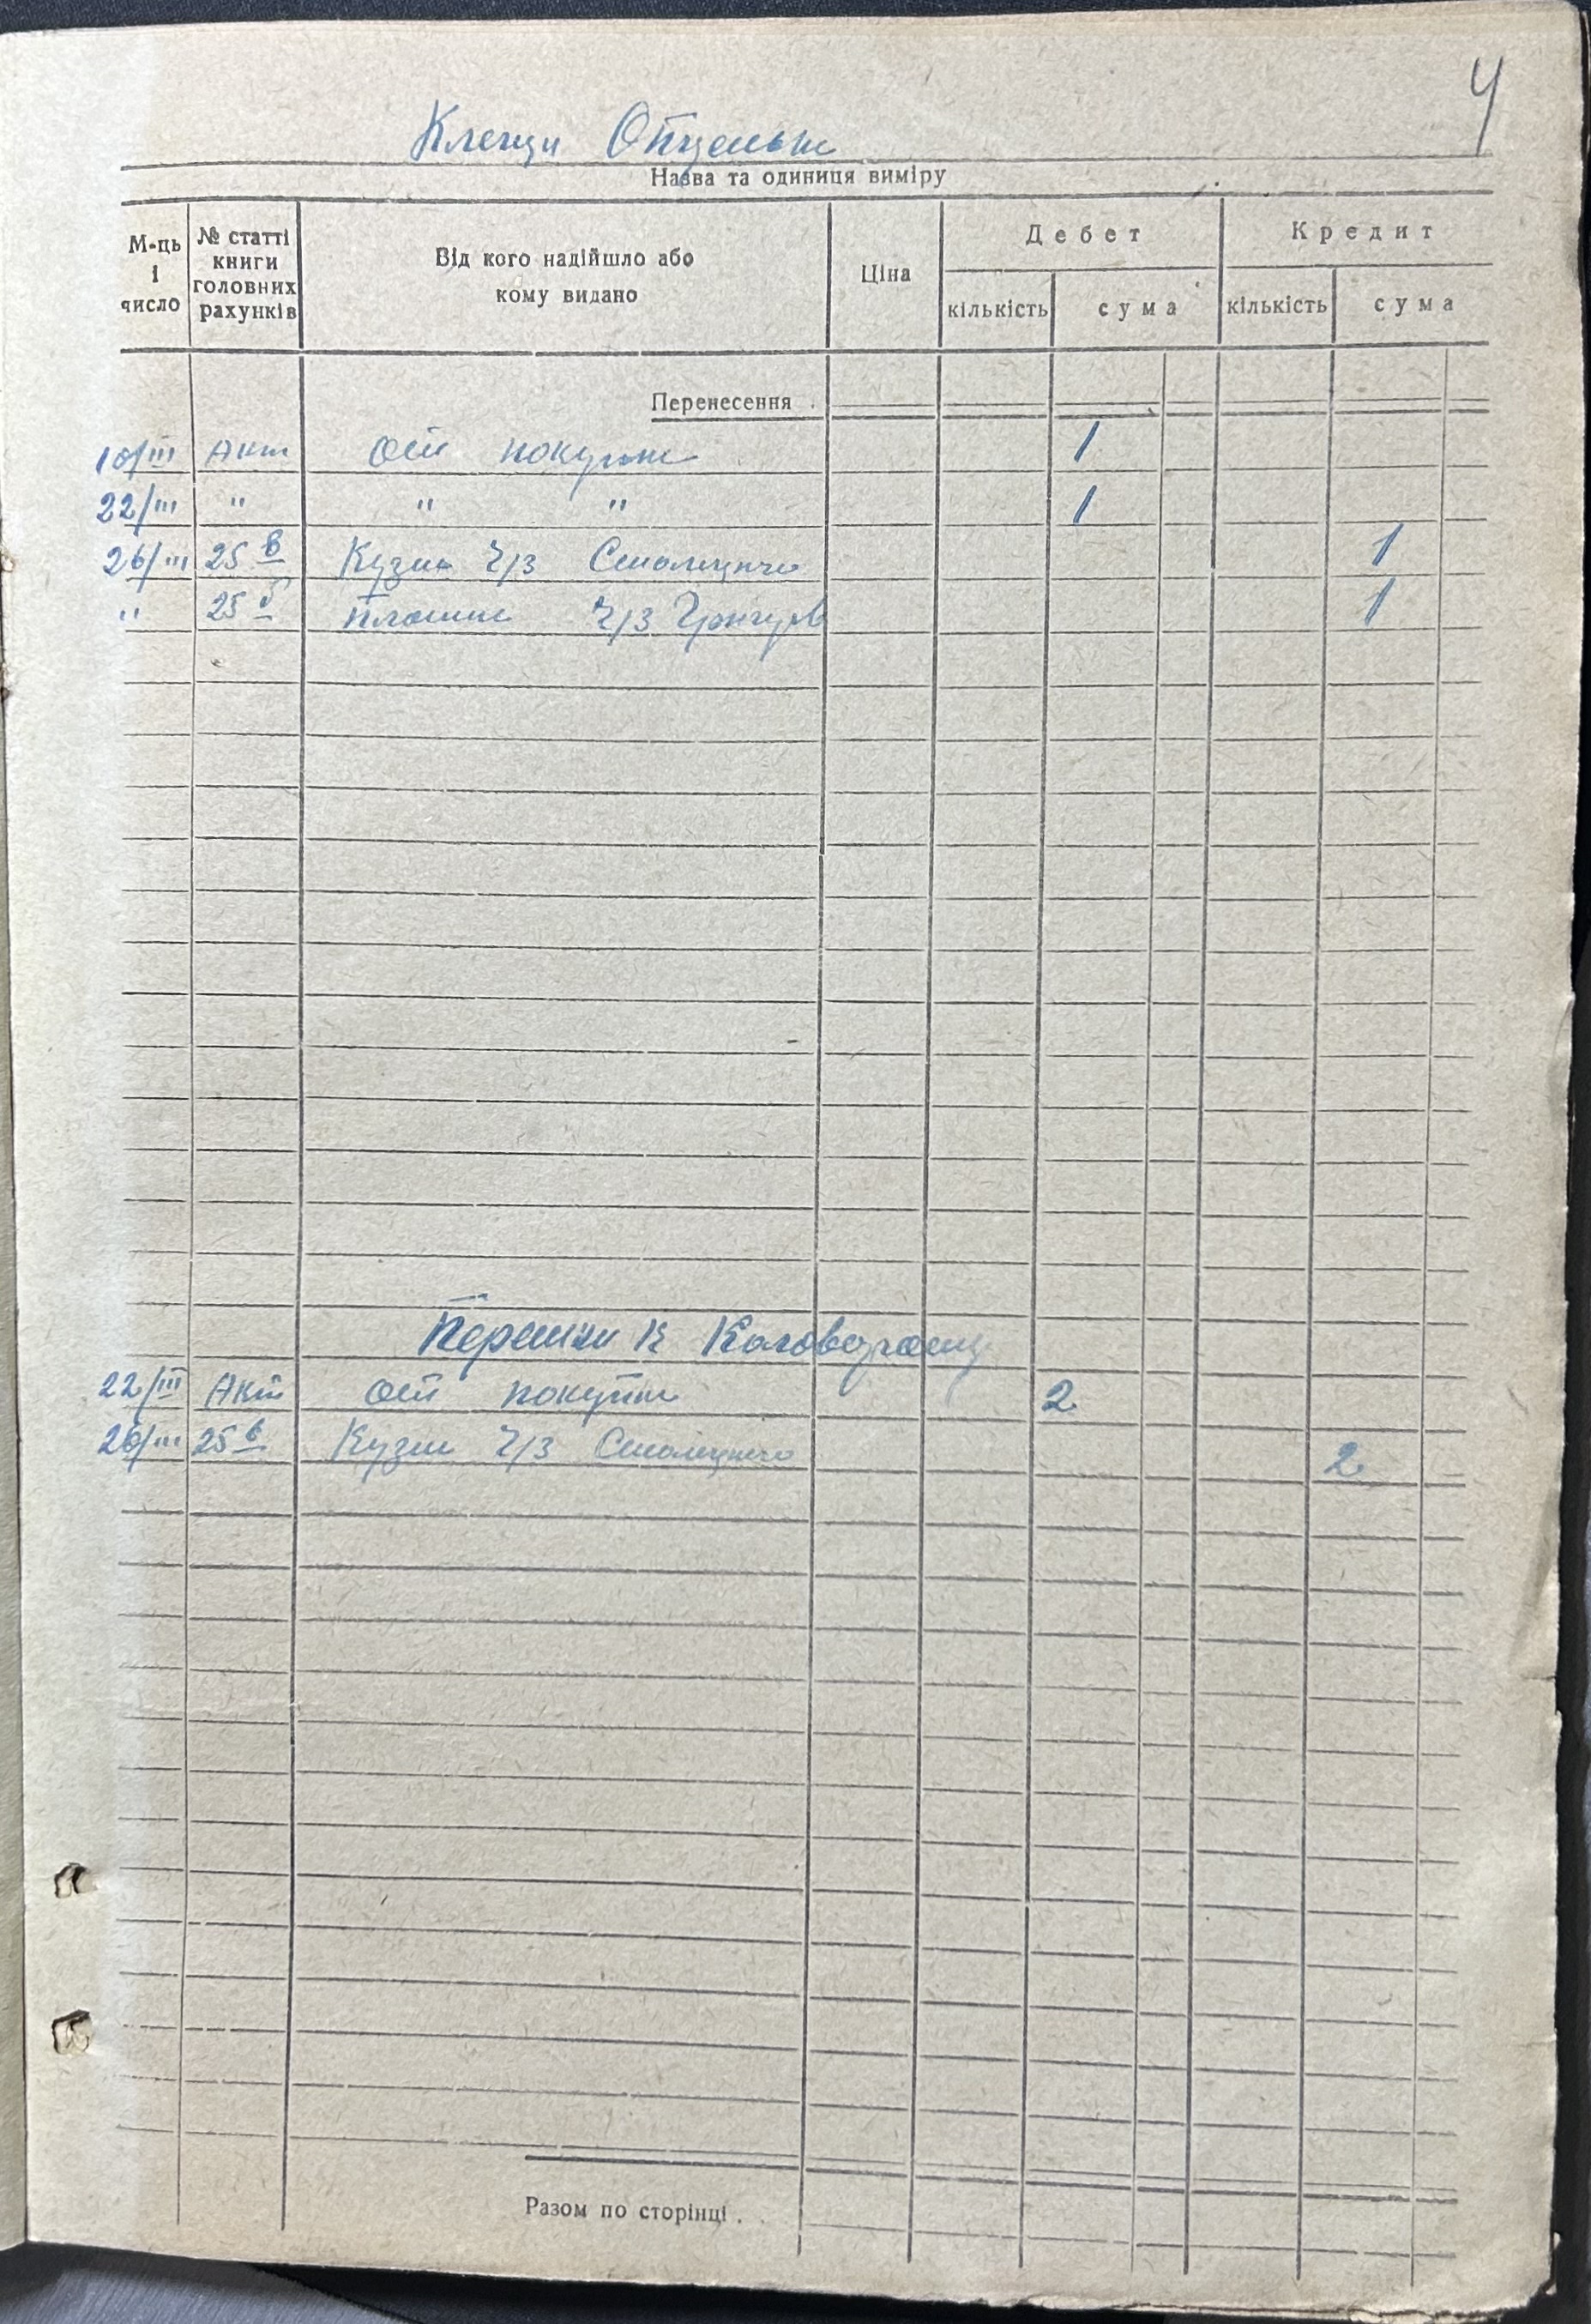 4
Клещи
Назва та одиниця виміру
М-ць і число
№ статті книги головних рахунків
Від кого надійшло або кому видано
Ціна
Дебет
Кредит
кількість сума кількість сума
Перенесення
10/III Акт От покупки 1
22/III " " " 1
26/III 25 в Кузня ч/з 1
" 25 б ч/з 1
к Коловороту
22/III Акт От покупки 2
26/III 25 в Кузня ч/з 2
Разом по сторінці.